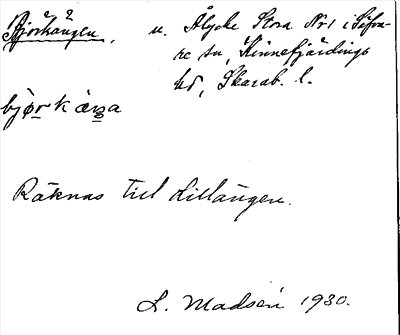 Björkängen, u. Ålycke Stora Nr 1 i Sifve-
su, Kinnefjärdings
hd, Skarab. l.
bjørkæŋa
Räknas till Lillängen.
L. Madsén 1930.